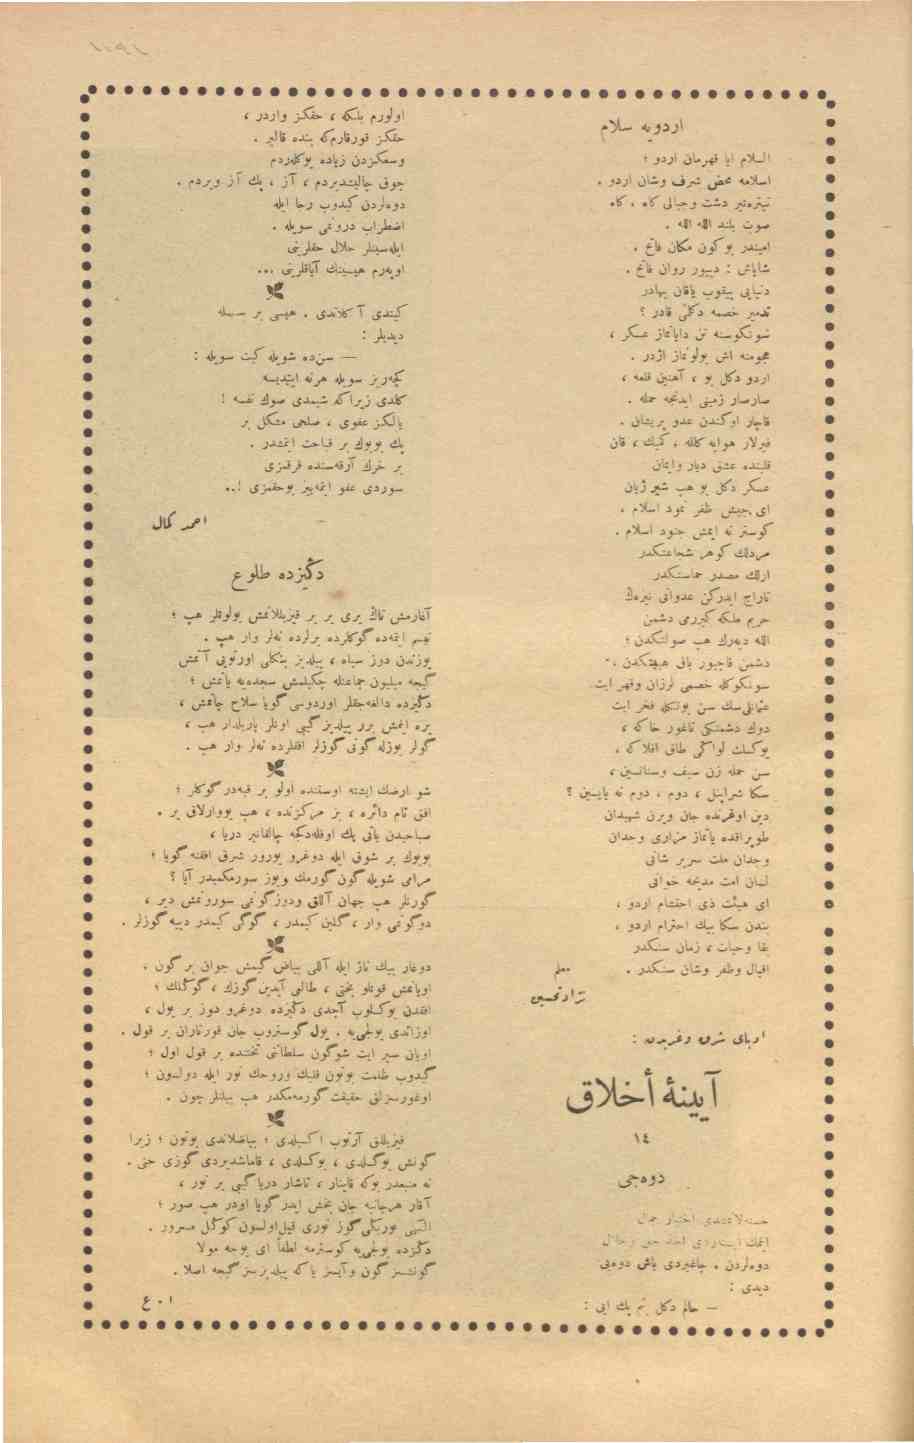 اردویه سلام
السلام ایا قهرمان اردو ؛
اسلامه محض شرف وشان اردو .
تیتره‌تیر دشت وجبالی کاه ، کاه
صوت بلند الله الله .
امیندر بوکون مکان فاتح .
شاباش : دییور روان فاتح .
دنیایی ییقوب یاقان بهادر
تدمیر خصمه دکلمی قادر ؟
سونکوسنه تن دایانماز عسکر ،
هجومنه اش بولونماز اژدر .
اردو دکل بو ، آهنین قلعه ،
صارصار زمینی ایدنجه حمله .
قاچار اوکندن عدو پریشان .
فیرلار هوایه کلله ، کمیک ، قان
قلبنده عشق دیار وایمان
عسکر دکل بو هپ شیر ژیان
ای جیش ظفر نمود اسلام ،
کوستر نه ایمش جنود اسلام .
مردلك کوهر شجاعتکدر
ارلك مصدر حماستکدر
تاراج ایدرکن عدوانی نیره‌ڭ
حریم ملکه کیررمی دشمن
الله دیه‌رك هپ صولتکدن ؛
دشمن قاچیور باق هیبتکدن .
سونکوکله خصمی لرزان وقهر ایت
عثمانلی‌سك سن بونکله فخر ایت
دوك دشمنکی ناغور خاکه ،
یوکسلت لواکی طاق افلاکه ،
سن حمله زن سیف وسنانسین ،
سکا شراپنل ، دوم ، دوم نه یاپسین ؟
دین اوغرنده جان ویرن شهیدان
طوپراقده یاتماز مزاری وجدان
وجدان ملت سریر شانی
لسان امت مدیحه خوانی
ای هیئت ذی احتشام اردو ،
بندن سکا بیك احترام اردو ،
بقا وحیات ، زمان سنکدر
اقبال وظفر وشان سنکدر .
معلم
نزار تحسین
ادبای شرق وغربدن :
آیینهٔ أخلاق
١٤
دوه‌جی
خسته‌لانمدی اختیار جمال
ایتمك ایسته‌ردی اخذ حق وحلال
دوه‌لردن . چاغیردی باش دوه‌یی
دیدی :
— حالم دکل بنم پك ایی :
اولورم بلکه ، حقکز واردر ،
حقکز قورقارم‌که بنده قالیر .
وسعکزدن زیاده یوکله‌ردم
چوق چالیشدیردم ، آز ، پك آز ویردم .
دوه‌لردن کیدوب رجا ایله
اضطراب درونمی سویله .
ایله‌سینلر حلال حقلرینی
اوپه‌رم هپسینك آیاقلرینی ...
کیتدی آ کلاتدی . هپسی بر سسله
دیدیلر :
— سن‌ده شویله کیت سویله :
کچه‌ریز سویله هرنه ایتدیسه
کلدی زیراکه شیمدی صوك نفسه !
یالکز عفوی ، صلحی مشکل بر
پك بویوك بر قباحت ایتمشدر .
بر خرك آرقه‌سنده فرقمزی
سوردی عفو ایتمه‌ییز بوحقمزی !..
احمد کمال
دڭیزده طلوع
آغارمش تاڭ یری بر بر قیزیللانمش بولوتلر هپ ؛
تبسم ایتمه‌ده گوکلرده یرلرده نه‌لر وار هپ .
یوزندن دوز سیاه ، ییلدیز بنکلی اورتویی آتمش
گیجه میلیون جماعتله چکیلمش سجده‌یه یاتمش ؛
دڭیزده دالغه‌جقلر اوردوسی گویا سلاح چاتمش ،
یره اینمش برر ییلدیز گیبی اونلر پاریلدار هپ ،
گولر یوزله گونی گوزلر افقلرده نه‌لر وار هپ .
شو ارضك ایشته اوستنده اولو بر قبه‌در گوکلر ؛
افق تام دائره ، بز مرکزنده ، هپ یووارلاق یر .
صباحیدن یانی پك اوفله‌دکجه چالقانیر دریا ،
بویوك بر شوق ایله دوغرو یورور شرق افقنه گویا ؛
مرامی شویله گون گورمك ویوز سورمکمیدر آیا ؟
گورنلر هپ جهان آللق ودوزگونمی سورونمش دیر ،
دوگونمی وار ، گلین کیمدر ، گوگی کیمدر دییه گوزلر .
دوغار بیك ناز ایله آللی بیاض گیمش جوان بر گون .
اویانمش قوتلو بختی ، طالعی آیدین گوزك ، گوگلك ؛
افقدن یوکسلوب آچدی دڭیزده دوغرو دوز بر یول ،
اوزاندی یولجی‌یه . یول گوستروب جان قورتاران بر قول .
اویان سیر ایت شوگون سلطاننی تختنده بر قول اول ؛
گیدوب ظلمت بوتون قلبك وروحك نور ایله دولسون ؛
اوغورسزلق حقیقت گورمه‌مکدر هپ بیلنلر چون .
قیزیللق آرتوب اکسیلدی ؛ بیاضلاندی بوتون ؛ زیرا
گونش بوگسلدی ، یوکسلدی ، قاماشدیردی گوزی حتی .
نه منبعدر بوکه قاینار ، تاشار دریا گیبی بر نور ،
آقار هرجانبه جان بخش ایدر گویا اودر هپ صور ؛
الٓهی یوریکلی گوز نوری قیل اولسون کوکل مسرور .
دڭیزده یولجی‌یه کوسترمه لطفاً ای یوجه مولا
گونشسز گون وآیسز یاکه ییلدیزسز گیجه اصلا .
ا . ع